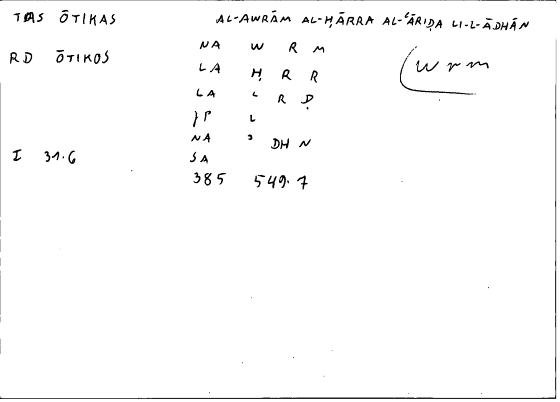 TAS ŌTIKAS AL-AWRĀM AL-ḤĀRRA AL-ʿĀRIḌA LI-L-ĀDHĀN
RD ŌTIKOS NA W R M
LA Ḥ R R
LA ʿ R Ḍ
JP L
NA ʾ DH N
I 31.6 SA
385 549.7
wrm